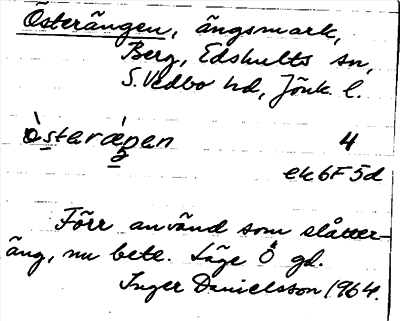 Österängen, ängsmark,
Berg, Edshults sn,
S. Vedbo hd, Jönk. l.
òsteræ̀ŋen 4
ek 6F 5d
Förr använd som slåtter-
äng, nu bete. Läge Ö gd.
Inger Danielsson 1964.